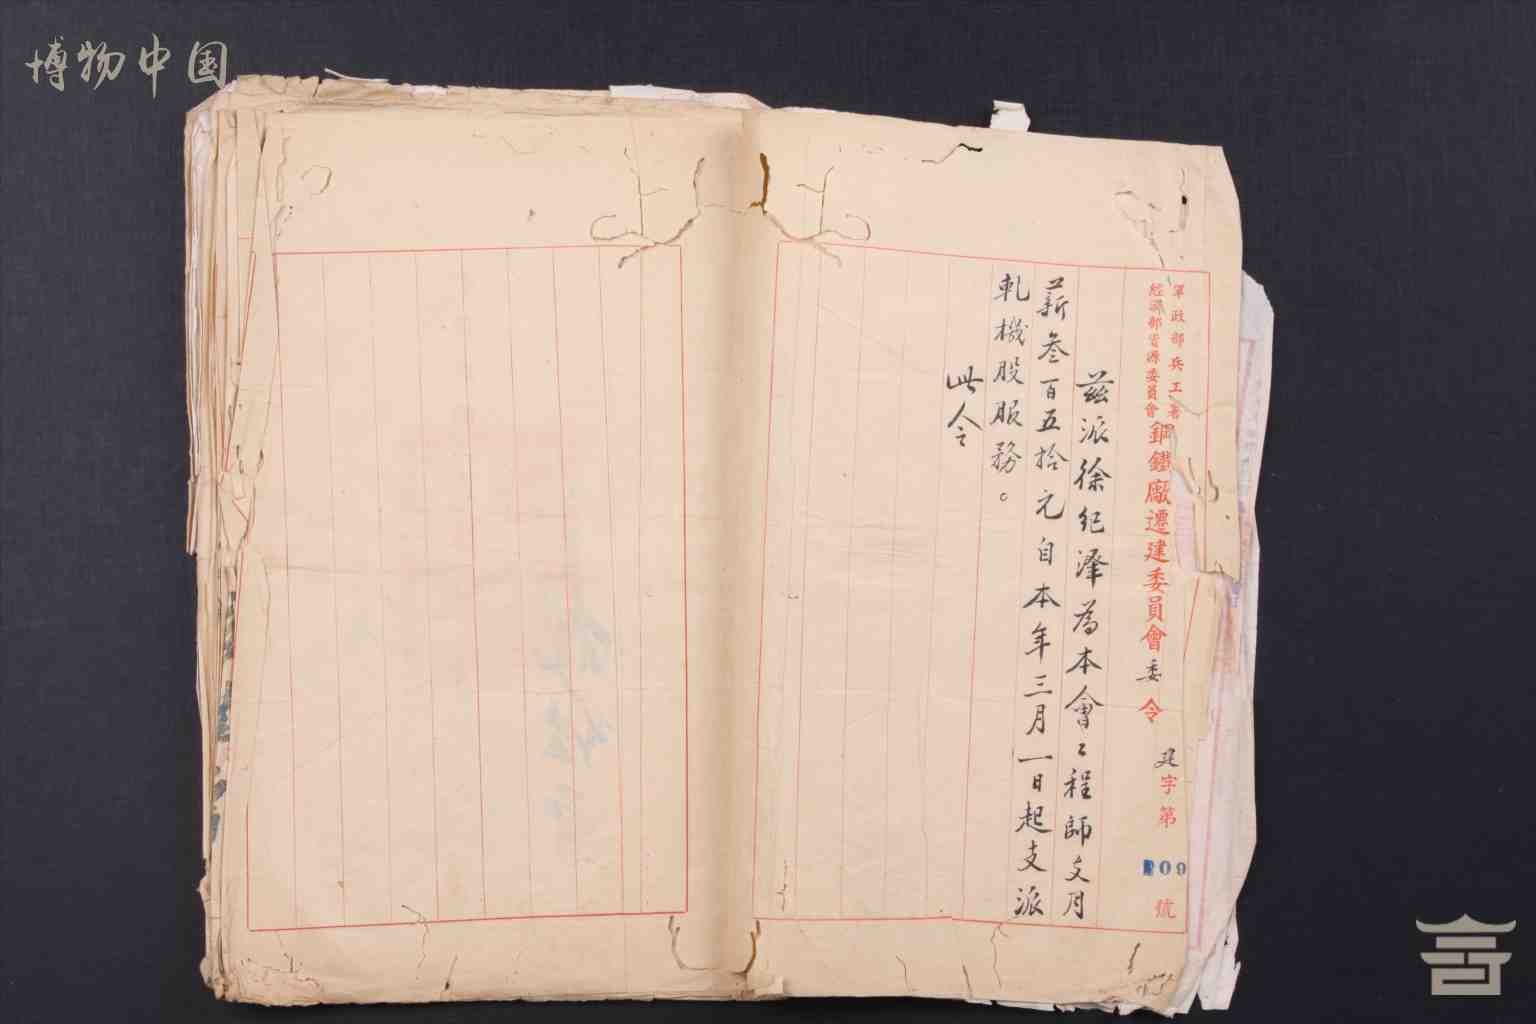 博物中国
軍政部兵工署
經濟部資源委員會
鋼鐵廠遷建委員會委令
建字第09號
茲派徐紀澤為本會工程師支月
薪叁百五拾元自本年三月一日起支派
軋機股服務。
此令